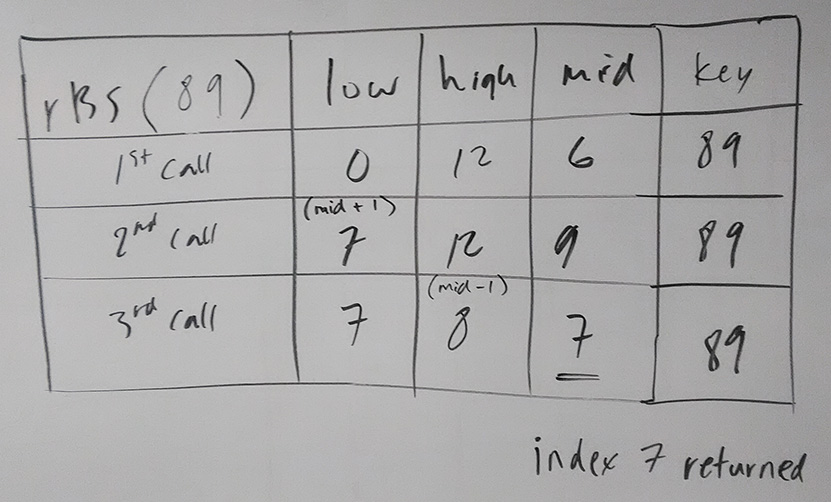 rBS (89) low high mid key
1st call 0 12 6 89
(mid + 1)
2nd call 7 12 9 89
(mid - 1)
3rd call 7 8 7 89
index 7 returned